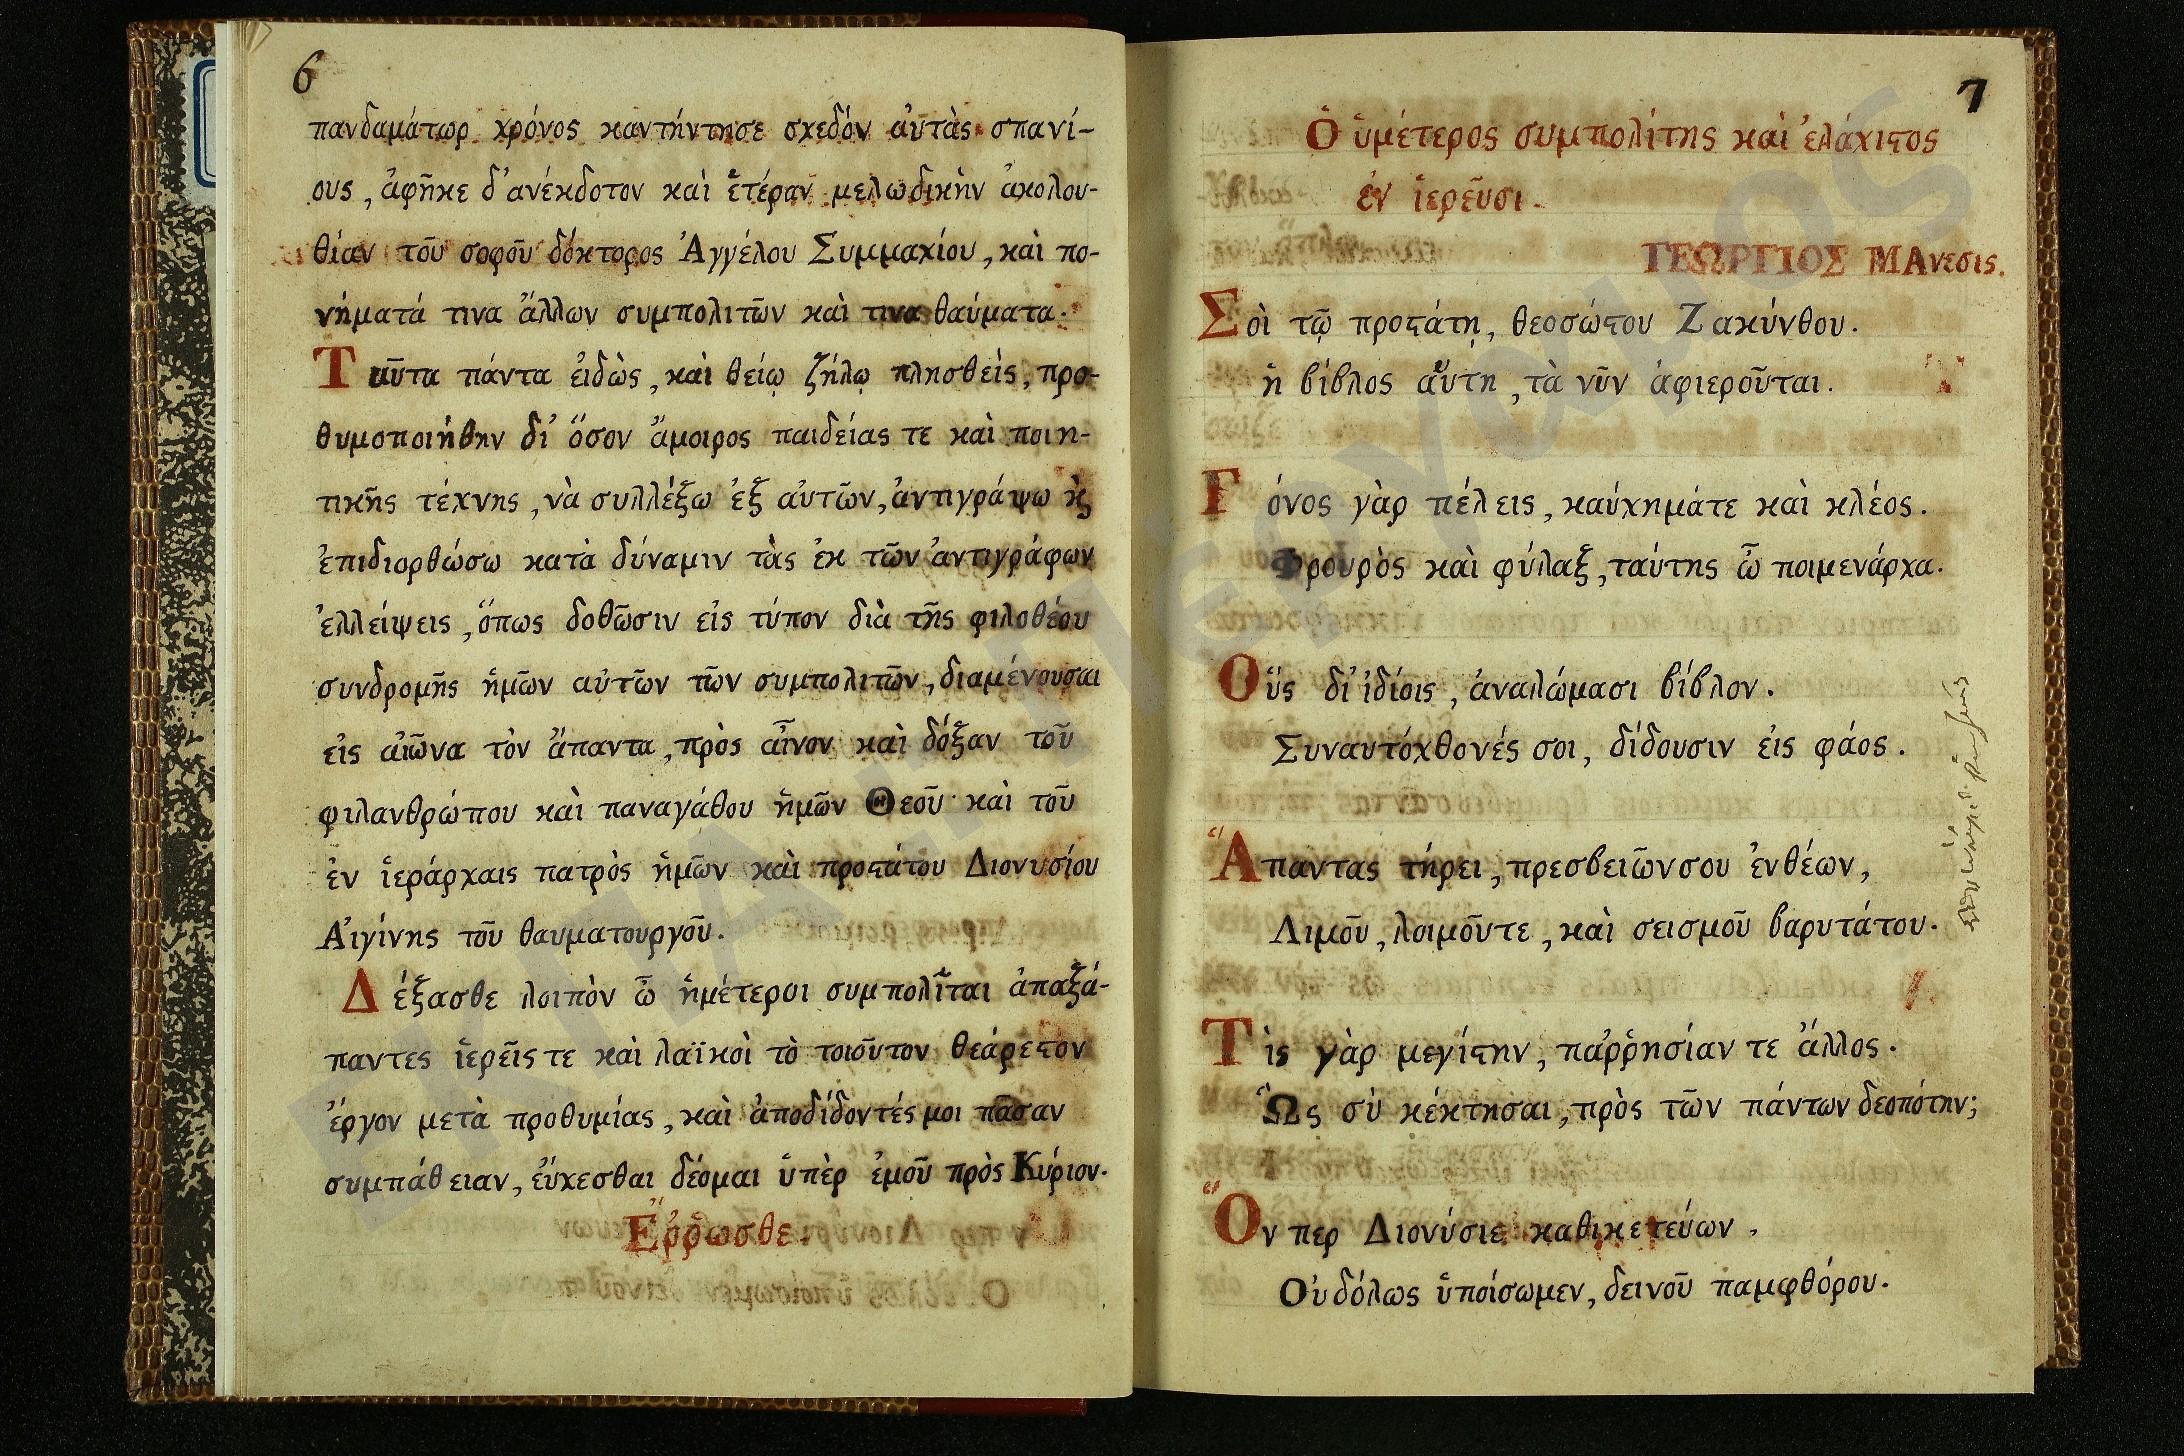 6
πανδαμάτωρ χρόνος καντήντησε σχεδόν αὐτὰς σπανί-
ους, ἀφῆκε δ'ἀνέκδοτον καὶ ἑτέραν μελωδικὴν ἀκολου-
θίαν τοῦ σοφοῦ δόκτορος Ἀγγέλου Συμμαχίου, καὶ πο-
νήματά τινα ἄλλων συμπολιτῶν καὶ τινα θαύματα.
Ταῦτα πάντα εἰδὼς, καὶ θείῳ ζήλῳ πλησθεὶς, προ-
θυμοποιήθην δι' ὅσον ἄμοιρος παιδείας τε καὶ ποιη-
τικῆς τέχνης, νὰ συλλέξω ἐξ αὐτῶν, ἀντιγράψω ϗ
ἐπιδιορθώσω κατὰ δύναμιν τὰς ἐκ τῶν ἀντιγράφων
ἐλλείψεις, ὅπως δοθῶσιν εἰς τύπον διὰ τῆς φιλοθέου
συνδρομῆς ἡμῶν αὐτῶν τῶν συμπολιτῶν, διαμένουσαι
εἰς αἰῶνα τὸν ἅπαντα, πρὸς αἶνον καὶ δόξαν τοῦ
φιλανθρώπου καὶ παναγάθου ἡμῶν Θεοῦ καὶ τοῦ
ἐν ἱεράρχαις πατρὸς ἡμῶν καὶ προϛάτου Διονυσίου
Αἰγίνης τοῦ θαυματουργοῦ.
Δέξασθε λοιπὸν ὦ ἡμέτεροι συμπολῖται ἀπαξά-
παντες ἱερεῖς τε καὶ λαϊκοὶ τὸ τοιοῦτον θεάρεϛον
ἔργον μετὰ προθυμίας, καὶ ἀποδίδοντές μοι πᾶσαν
συμπάθειαν, εὔχεσθαι δέομαι ὑπὲρ ἐμοῦ πρὸς Κύριον.
Ἔῤῥωσθε.
7
Ὁ ὑμέτερος συμπολίτης καὶ ἐλάχιϛος
ἐν ἱερεῦσι.
ΓΕΩΡΓΙΟΣ ΜΑνεσις.
Σοὶ τῷ προϛάτῃ, θεοσώϛου Ζακύνθου.
ἡ βίβλος αὕτη, τὰ νῦν ἀφιεροῦται.
Γόνος γὰρ πέλεις, καύχημάτε καὶ κλέος.
Φρουρὸς καὶ φύλαξ, ταύτης ὦ ποιμενάρχα.
Οὕς δι' ἰδίοις, ἀναλώμασι βίβλον.
Συναυτόχθονές σοι, δίδουσιν εἰς φάος.
Ἅπαντας τήρει, πρεσβειῶνσου ἐνθέων,
Λιμοῦ, λοιμοῦτε, καὶ σεισμοῦ βαρυτάτου.
Τὶς γὰρ μεγίϛην, παῤῥησίαν τε ἄλλος.
Ὡς σὺ κέκτησαι, πρὸς τῶν πάντων δεσπότην;
Ὅν περ Διονύσιε καθικετεύων,
Οὐδόλως ὑποίσωμεν, δεινοῦ παμφθόρου.